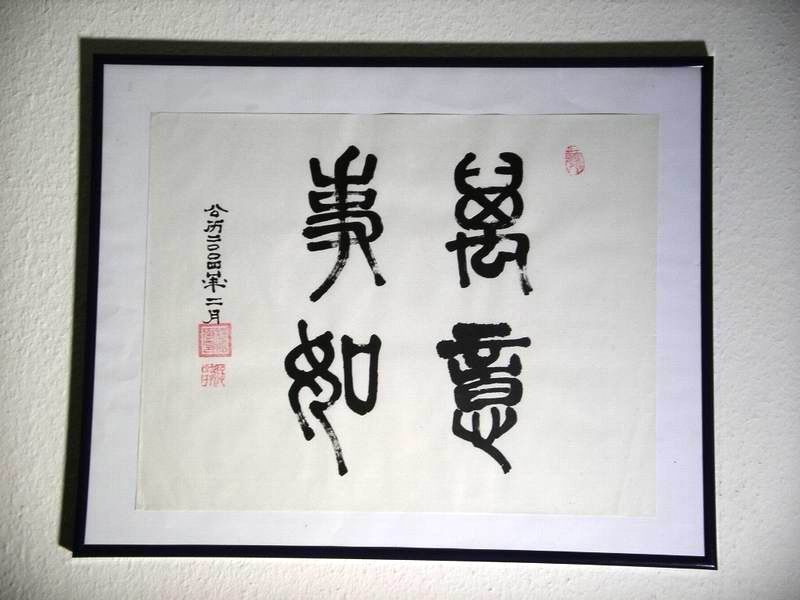 萬事
如意
公历二〇〇四年二月